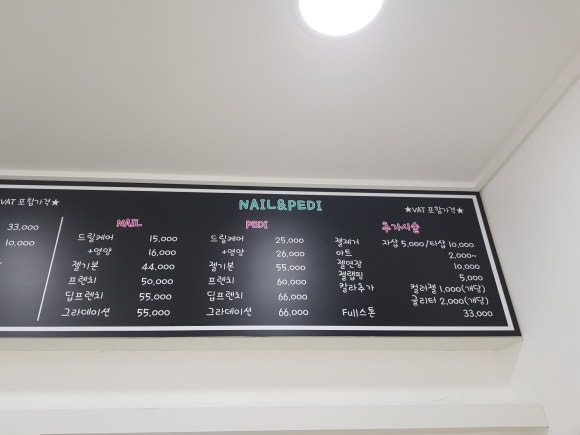 VAT 포함가격★
33,000
10,000
NAIL&PEDI
★VAT 포함가격★
NAIL
드릴케어 15,000
+영양 16,000
젤기본 44,000
프렌치 50,000
딥프렌치 55,000
그라데이션 55,000
PEDI
드릴케어 25,000
+영양 26,000
젤기본 55,000
프렌치 60,000
딥프렌치 66,000
그라데이션 66,000
추가시술
젤제거 자샵 5,000/타샵 10,000
아트 2,000~
젤연장 10,000
젤랩핑 5,000
칼라추가 컬러젤 1,000(개당)
글리터 2,000(개당)
Full스톤 33,000